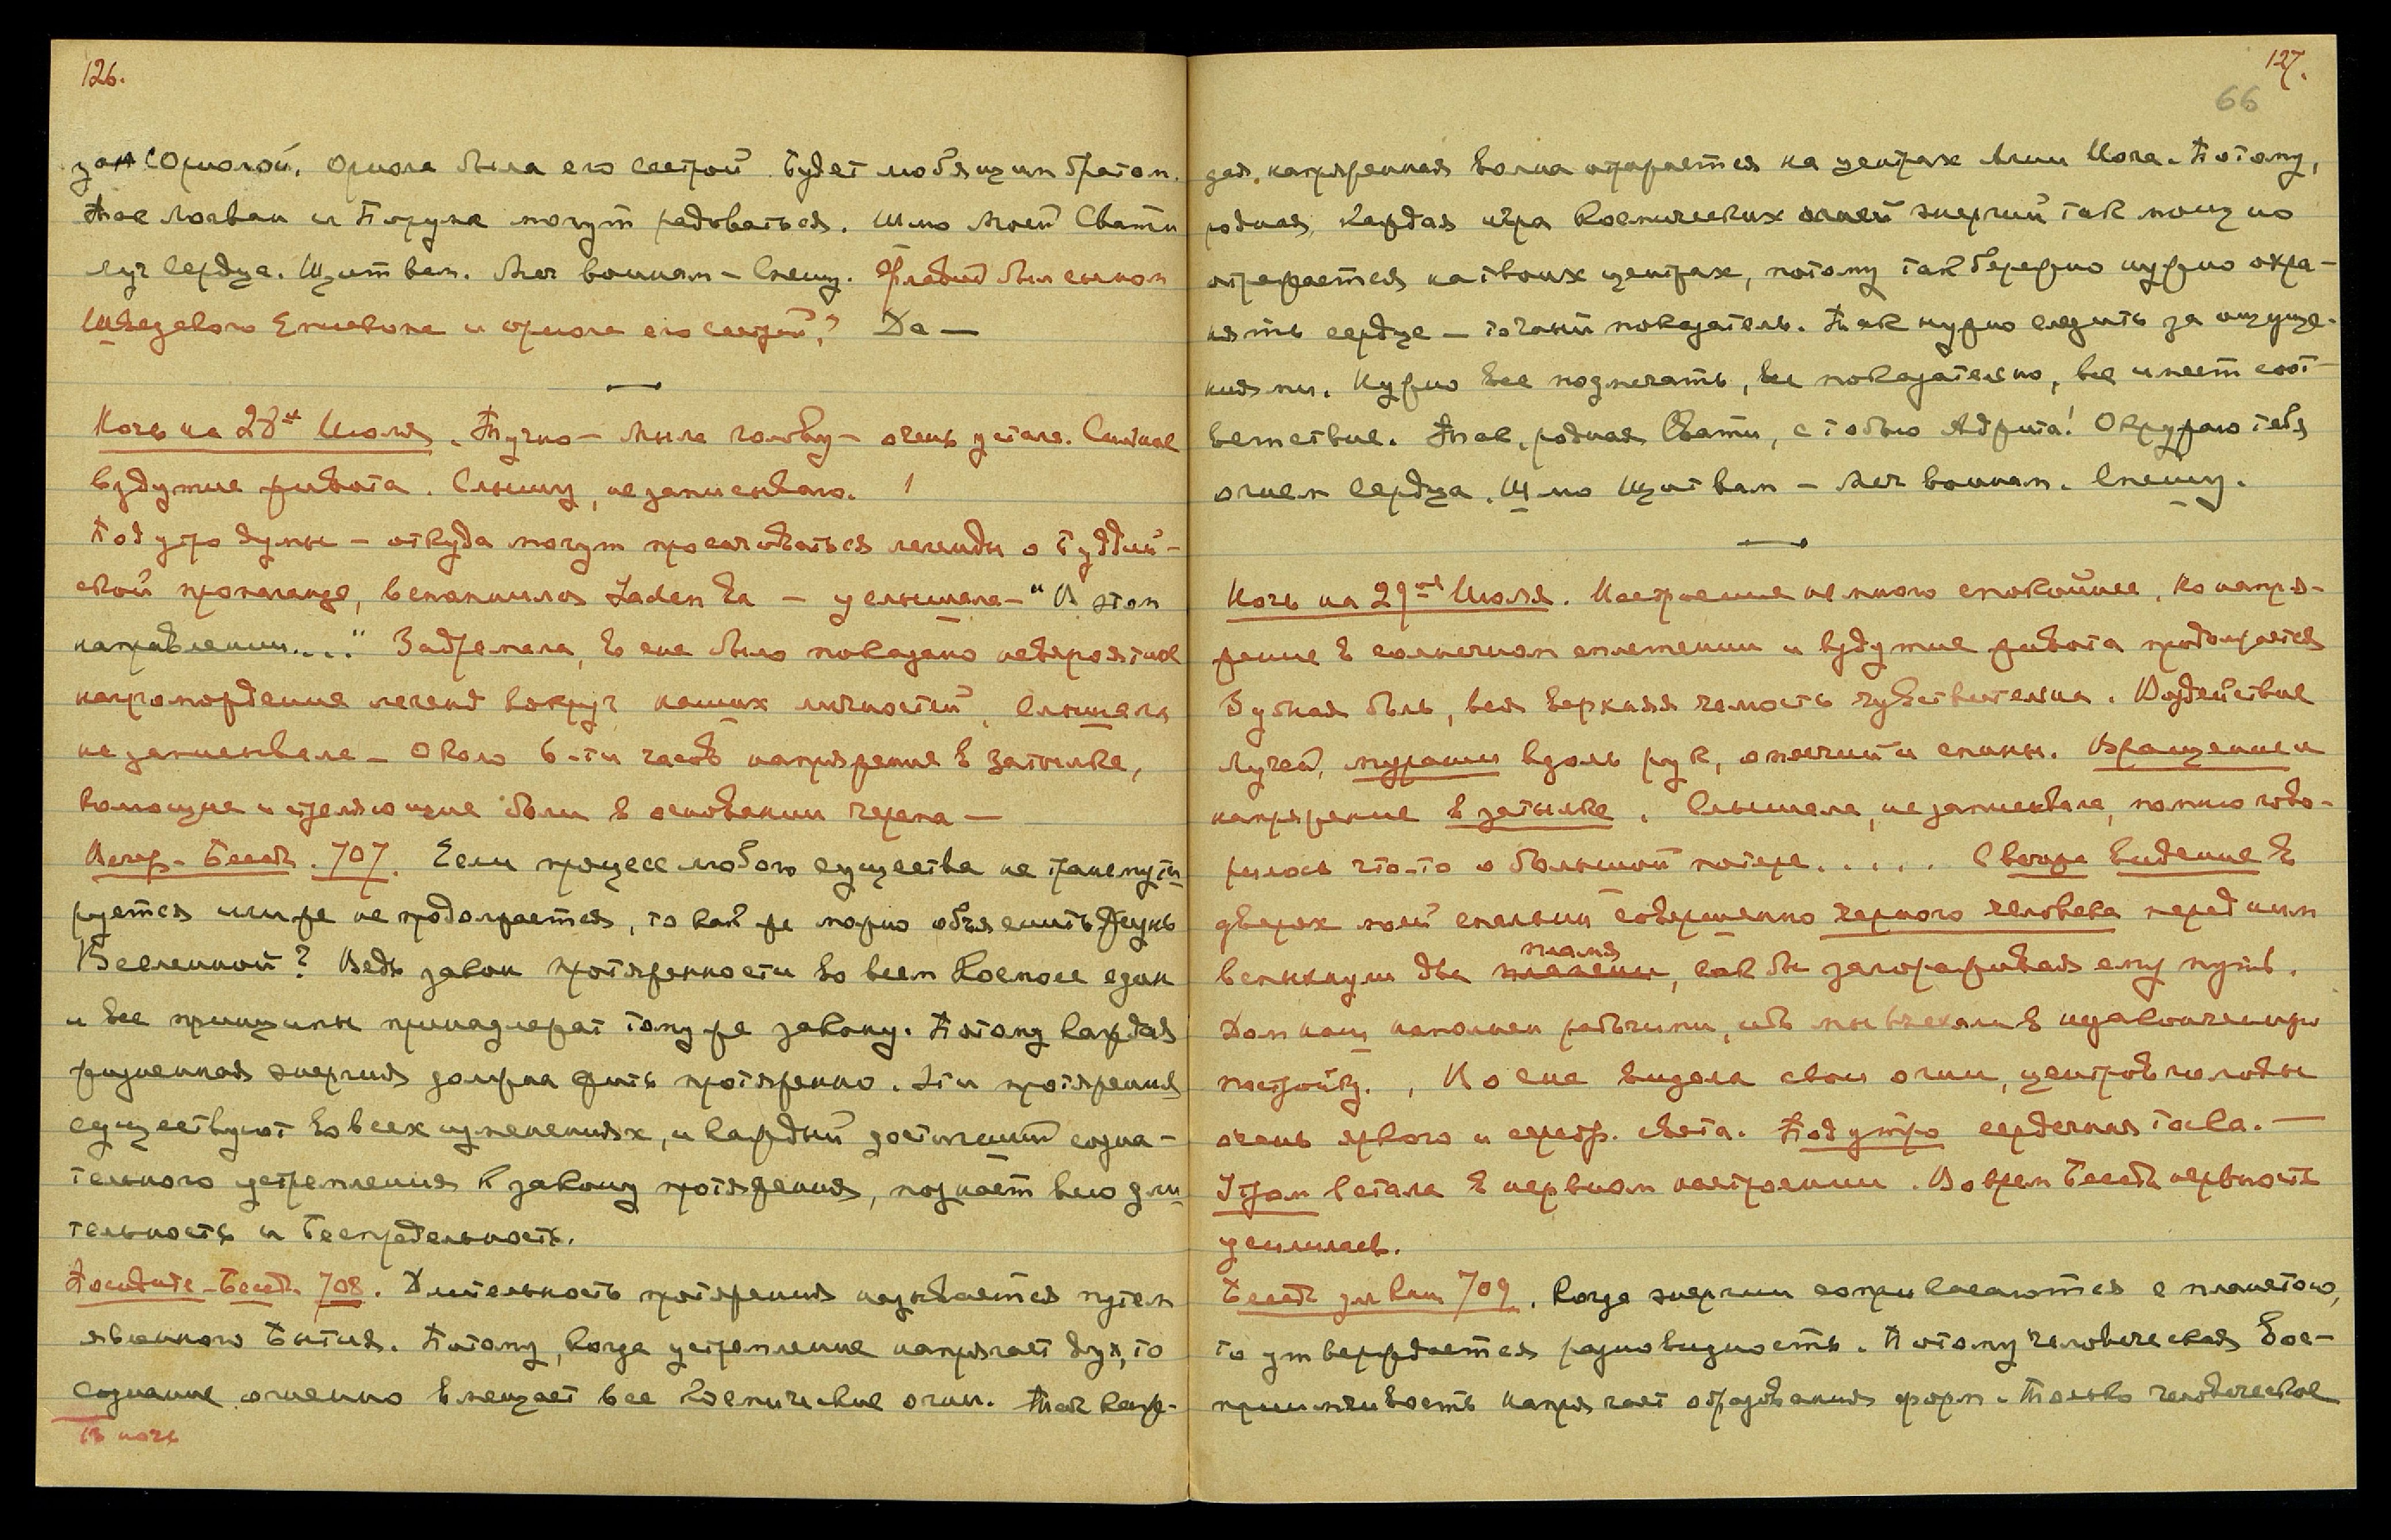 126.
зан с Ориолой. Ориола была его сестрой. Будет любящим братом.
Так Логван и Порума могут радоваться. Шлю моей Свати
луч сердца. Щит вам. Меч воинам – Спешу. был сыном
Шведского Епископа и Ориола его сестрой? Да —
Ночь на 28ое Июля. Тучно – мыла голову – очень устала. Сильное
вздутие живота. Слышу, не записываю. 1
Под утро думы – откуда могут просачиваться легенды о Буддий-
ской пропаганде, вспомнила Laden La – услышала – "В этом
направлении...." Задремала, в сне было показано невероятное
нагромождение легенд вокруг наших личностей, слышала
не записывала – Около 6-ти часов напряжение в затылке,
колющие и стреляющие боли в основании черепа —
Вечер. Бесед. 707. Если процесс любого существа не трансмути-
руется или же не продолжается, то как же можно объяснить жизнь
Вселенной? Ведь закон протяженности во всем Космосе един
и все принципы принадлежат тому же закону. Потому каждая
жизненная энергия должна жить протяженно. Эти протяжения
существуют во всех изменениях, и каждый достигший созна-
тельного устремления к закону протяжения, познает всю дли-
тельность и Беспредельность.
Посидите – Бесед. 708. Длительность протяжения называется путем
явленного Бытия. Потому, когда устремление напрягает дух, то
сознание огненно вмещает все космические огни. Так каж-
В ночь
127.
66
дая, напряженная волна отражается на центрах Агни Йога. Потому,
родная, каждая игра космических огней энергий так мощно
отражается на твоих центрах, потому так бережно нужно охра-
нять сердце – точный показатель. Так нужно следить за ощуще-
ниями. Нужно все подмечать, все показательно, все имеет соот-
ветствие. Так, родная Свати, с тобою Адрита! Окружаю тебя
огнем сердца. Шлю Щит вам – Меч воинам. Спешу.
Ночь на 29ое Июля. Настроение немного спокойнее. Но напря-
жение в солнечном сплетении и вздутие живота продолжается
Зубная боль, вся верхняя челюсть чувствительна. Воздействие
Лучей, мурашки вдоль рук, оконечий и спины. Вращение и
напряжение в затылке. Слышала, не записывала, помню гово-
рилось что-то о большой потере..... С вечера видение в
дверях моей спальни совершенно черного человека перед ним
пламя
вспыхнули два пламени, как бы загораживая ему путь.
Дом наш наполнен рабочими, ибо мы въехали в незаконченную
постройку., Во сне видела свои огни, центров головы
очень яркого и серебр. света. Под утро сердечная тоска. —
Утром встала в нервном настроении. Во врем. Бесед нервность
усилилась.
Бесед. для кни 709. Когда энергии соприкасаются с планетою,
то утверждается разновидность. Потому человеческая вос-
приимчивость напрягает образования форм. Только человеческое